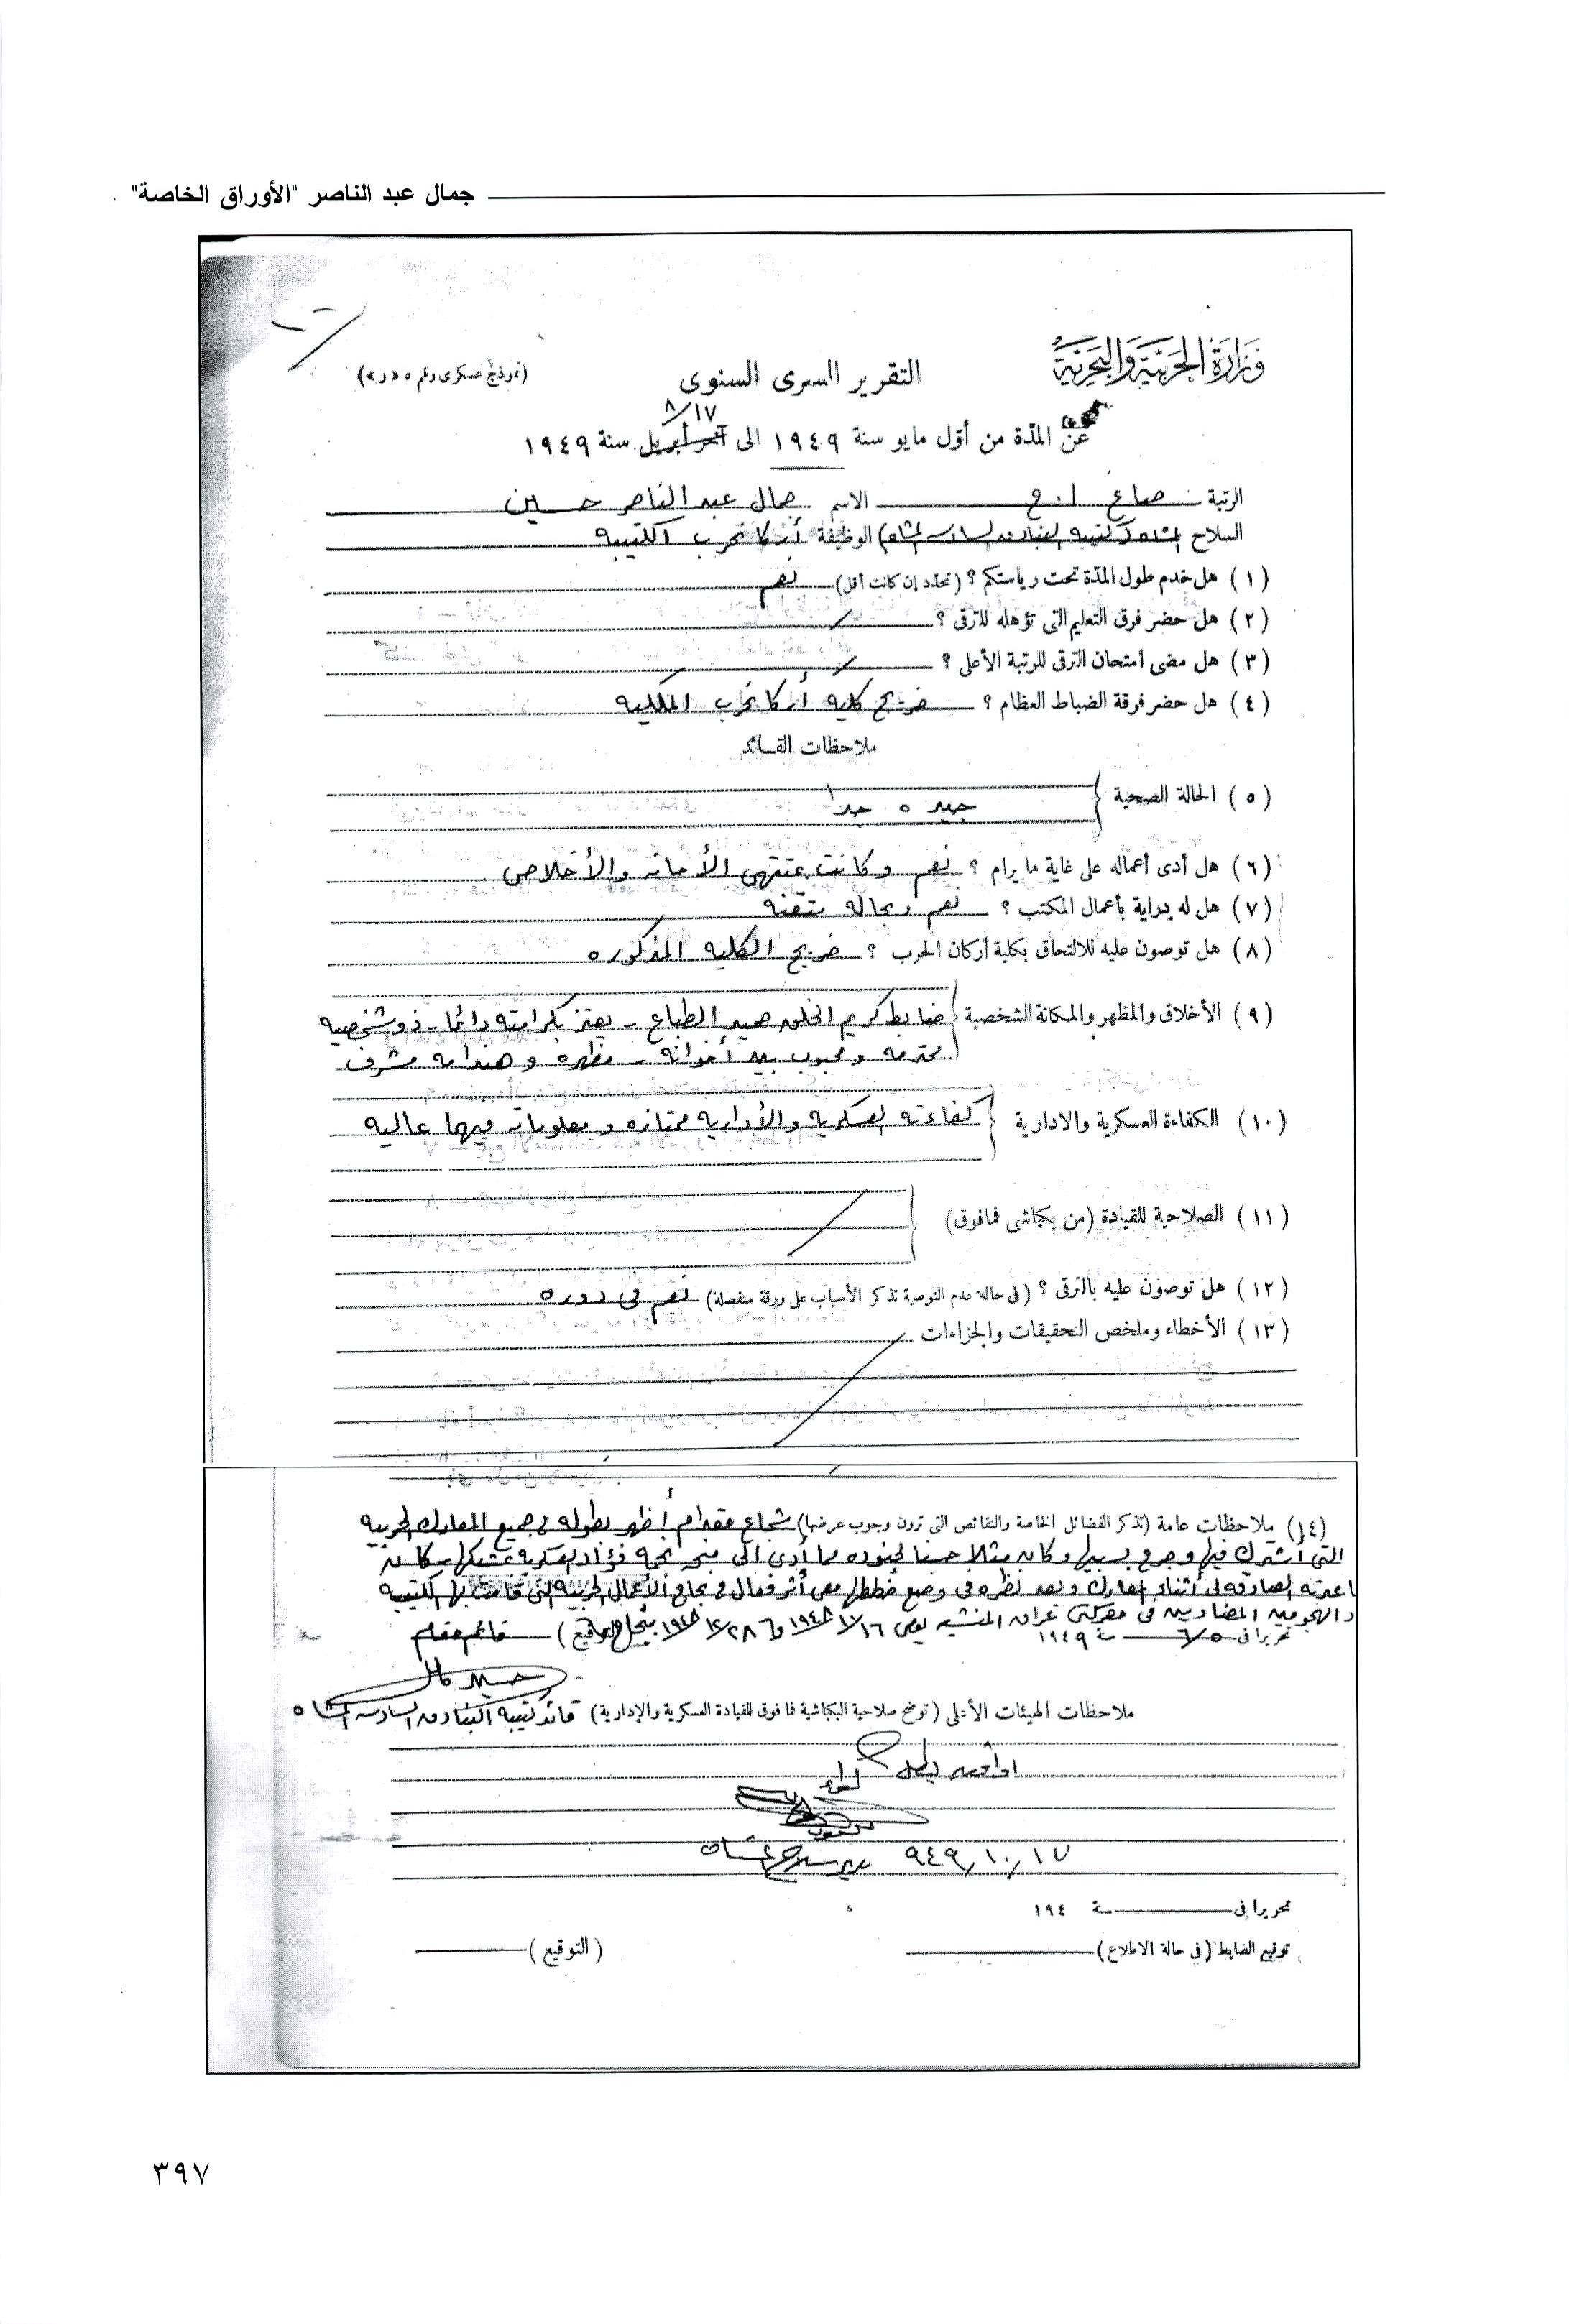 جمال عبد الناصر "الأوراق الخاصة"
وزارة الحربية والبحرية
التقرير السرى السنوى
(نموذج عسكرى رقم ٥ «ر»)
٨/١٧
عن المدّة من أوّل مايو سنة ١٩٤٩ الى آخر أبريل سنة ١٩٤٩
الرتبة صاغ أ . ح الاسم جمال عبد الناصر حسين
السلاح المشاه (كتيبة البنادق السادسة المشاه) الوظيفة أركانحرب الكتيبه
(١) هل خدم طول المدّة تحت رياستكم ؟ (تحدّد إن كانت أقل) نعم
(٢) هل حضر فرق التعليم التى تؤهله للترقى ؟
(٣) هل مضى امتحان الترقى للرتبة الأعلى ؟
(٤) هل حضر فرقة الضباط العظام ؟ خريج كلية أركانحرب الملكيه
ملاحظات القائد
(٥) الحالة الصحية جيده جدا
(٦) هل أدى أعماله على غاية ما يرام ؟ نعم وكانت بمنتهى الأمانه والأخلاص
(٧) هل له دراية بأعمال المكتب ؟ نعم وبحاله متقنه
(٨) هل توصون عليه للالتحاق بكلية أركان الحرب ؟ خريج الكليه المذكوره
(٩) الأخلاق والمظهر والمكانة الشخصية ضابط كريم الخلق حميد الطباع - يعتز بكرامته دائما - ذو شخصيه
محترمه ومحبوب بين أخوانه - مظهره وهندامه مشرف
(١٠) الكفاءة العسكرية والادارية كفاءته العسكريه والأداريه ممتازه ومعلوماته فيهما عاليه
(١١) الصلاحية للقيادة (من بكباشى فمافوق)
(١٢) هل توصون عليه بالترقى ؟ (فى حالة عدم التوصية تذكر الأسباب على ورقة منفصلة) نعم فى دوره
(١٣) الأخطاء وملخص التحقيقات والجزاءات
(١٤) ملاحظات عامة (تذكر الفضائل الخاصة والنقائص التى ترون وجوب عرضها) شجاع مقدام أظهر بطوله فى جميع المعارك الحربيه
التى أشترك فيها وجرح بسببها وكان مثلا حسنا لجنوده مما أدى الى منحه نجمه فؤاد العسكريه بمشبكها - كان
العزيمه الصادقه فى أثناء المعارك وبعد نظره فى وضع خططها معى أثر فعال فى نجاح الأعمال الحربيه التى قامت بها الكتيبه
والهجومين المضادين فى معركتى عراق المنشيه يومى ١٦/١٠/١٩٤٨ و ٢٨/١٢/١٩٤٨ بنجاح
تحريرا فى ٥/٦ سنة ١٩٤٩ (التوقيع) قائمقام
ملاحظات الهيئات الأعلى (توضح صلاحية البكباشية فما فوق للقيادة العسكرية والإدارية) قائد كتيبة البنادق السادسه المشاه
لواء
١٧/١٠/٩٤٩ مدير سلاح المشاه
تحريرا فى سنة ١٩٤
توقيع الضابط (فى حالة الاطلاع) (التوقيع)
٣٩٧